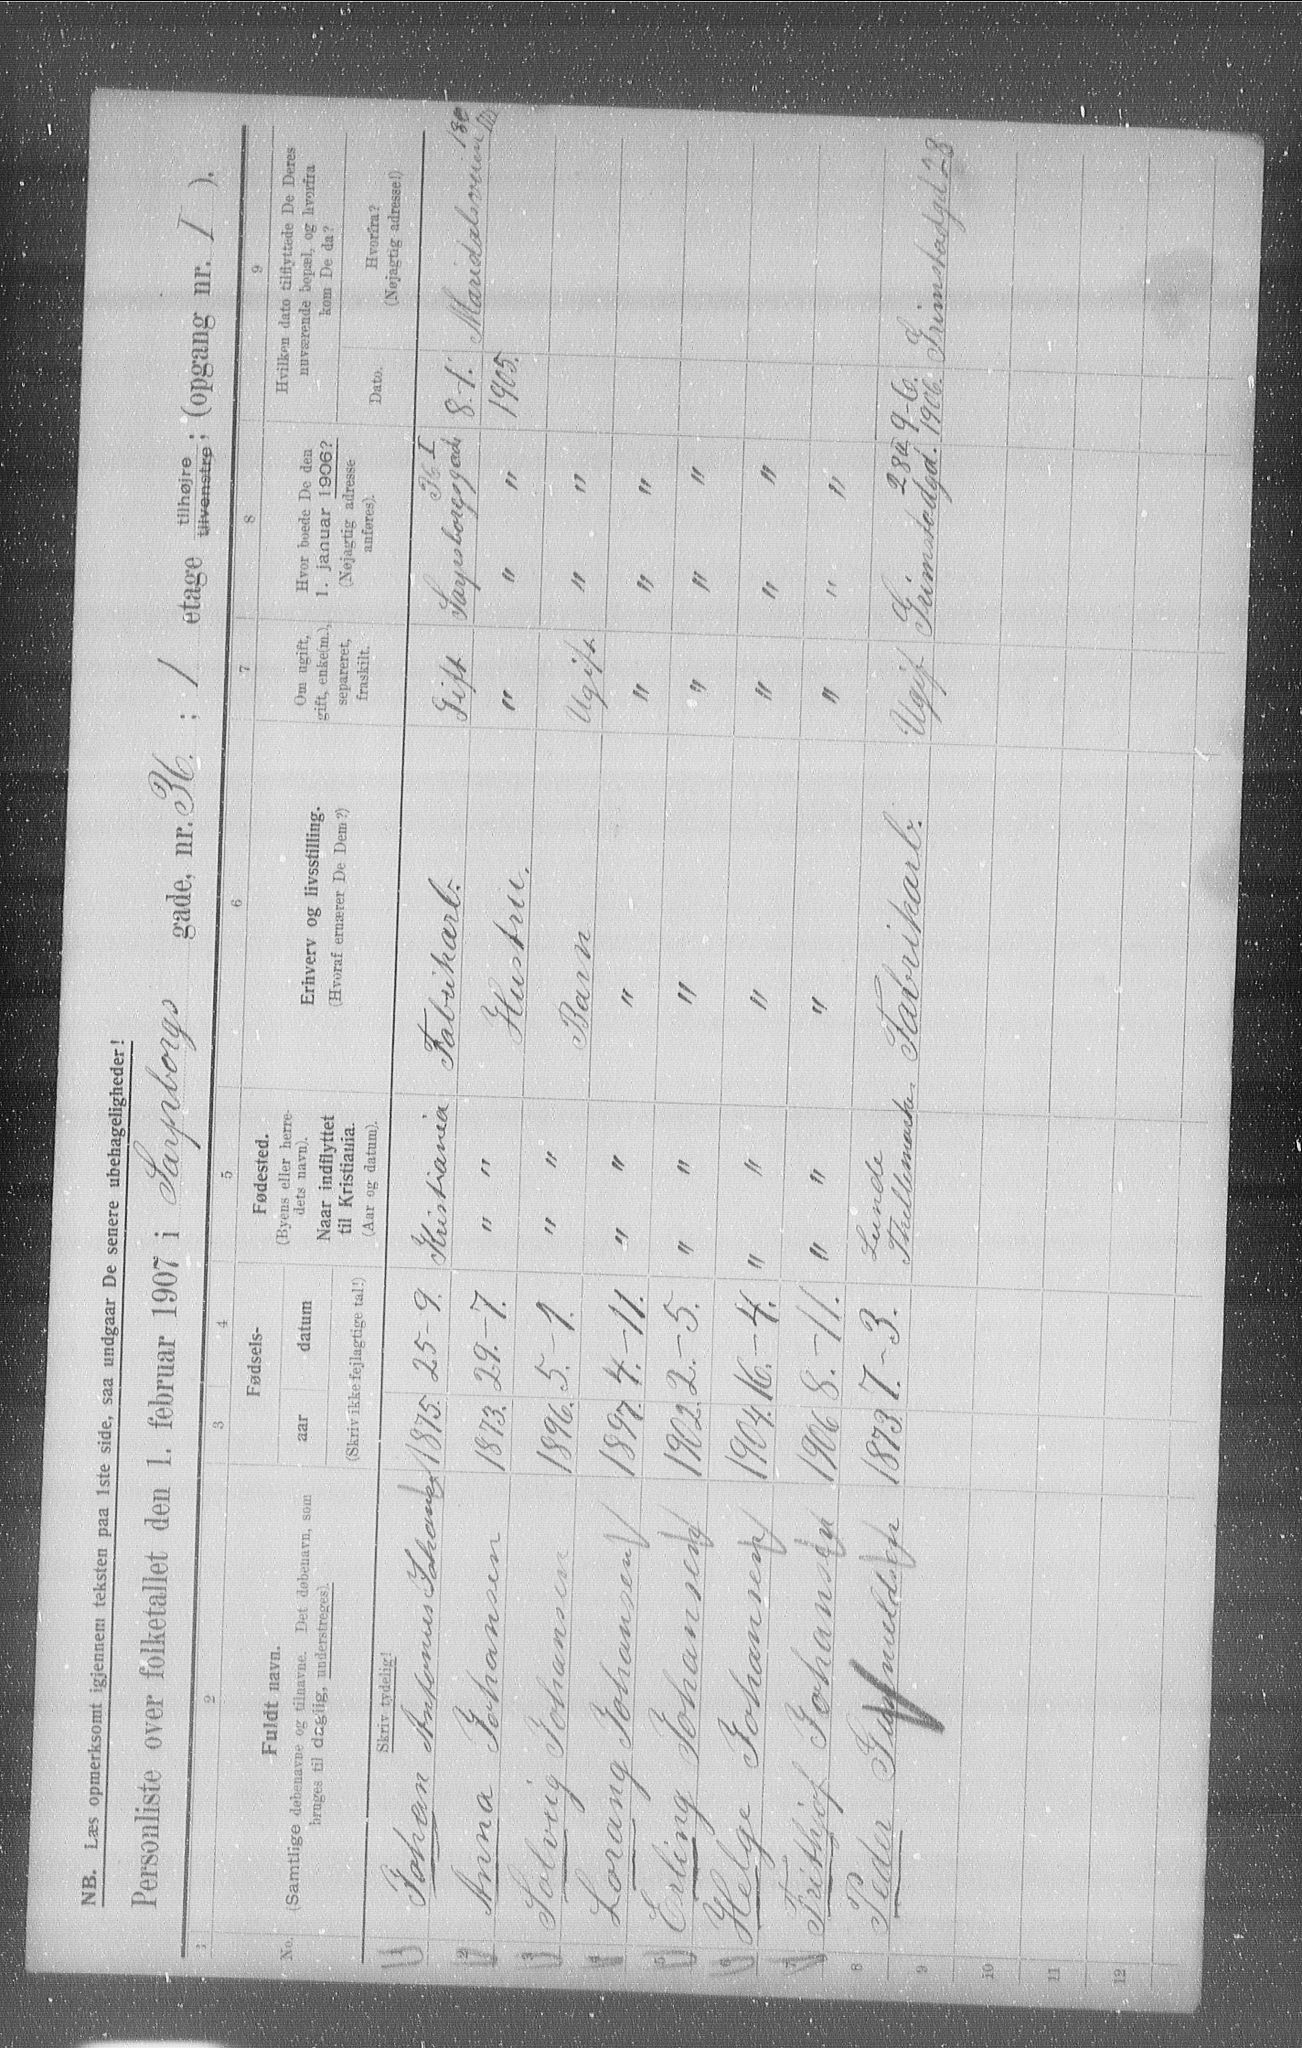 NB. Læs opmerksomt igjennem teksten paa 1ste side, saa undgaar De senere ubehageligheder!
Personliste over folketallet den 1. februar 1907 i Sarpsborgs gade, nr. 36. ; 1 etage tilhøjre tilvenstre; (opgang nr. I ).
1 2 3 4 5 6 7 8 9
No. Fuldt navn. (Samtlige døbenavne og tilnavne. Det døbenavn, som bruges til daglig, understreges). Fødsels- aar datum (Skriv ikke fejlagtige tal!) Fødested. (Byens eller herredets navn). Naar indflyttet til Kristiania. (Aar og datum). Erhverv og livsstilling. (Hvoraf ernærer De Dem?) Om ugift, gift, enke(m.), separeret, fraskilt. Hvor boede De den 1. januar 1906? (Nøjagtig adresse anføres). Hvilken dato tilflyttede De Deres nuværende bopæl, og hvorfra kom De da? Dato. Hvorfra? (Nøjagtig adresse!)
Skriv tydelig!
1 Johan Antonius Johansen 1875. 25-9. Kristiania Fabrikarb. Gift Sarpsborggade 36 I 8-1. Maridalsveien
2 Anna Johansen 1873. 29.-7. " " Hustru. " " " 1905.
3 Solveig Johansen 1896. 5.-1. " " Barn Ugift " "
4 Lorang Johansen 1897. 4.-11. " " " " " "
5 Erling Johansen 1902. 2.-5. " " " " " "
6 Helge Johansen 1904. 16.-4. " " " " " "
7 Frithjof Johansen 1906 8.-11. " " " " " "
8 Peder Gunnuldsen 1873 7-3. Lunde Thellemarken Fabrikarb. Ugift Grimstadgd. 28a 9-6. 1906. Grimstadgd 28
9
10
11
12